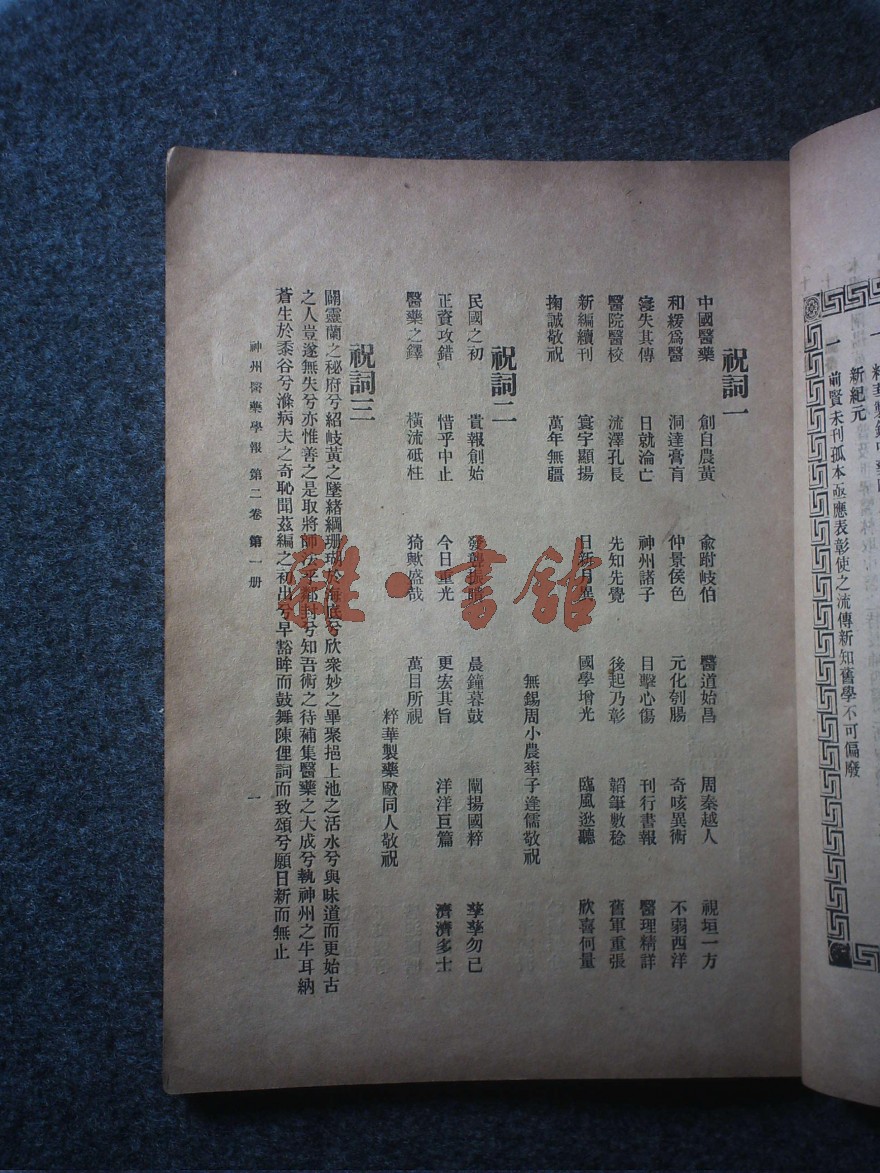 祝詞一
中國醫藥　創自農黃　兪跗岐伯　醫道始昌　周秦越人　視垣一方
和緩爲醫　洞達膏肓　仲景侯色　元化刳腸　奇咳異術　不弱西洋
寖失其傳　日就淪亡　神州諸子　目擊心傷　刊行書報　醫理精詳
醫院醫校　流澤孔長　先知先覺　後起乃彰　韜筆數稔　舊軍重張
新編續刊　寰宇顯揚　日新月異　國學增光　臨風逖聽　欣喜何量
掬誠敬祝　萬年無疆
無錫周小農率子逢儒敬祝
祝詞二
民國之初　貴報創始　發聾振聵　晨鐘暮鼓　闡揚國粹　孳孳勿已
正資攻錯　惜乎中止　今日重光　更宏其旨　洋洋巨篇　濟濟多士
醫藥之鐸　橫流砥柱　猗歟盛哉　萬目所視
粹華製藥廠同人敬祝
祝詞三
闢靈蘭之秘府兮紹岐黃之墜緒綱珊瑚於海底兮欣衆妙之畢聚挹上池之活水兮與昧道而更始古
之人豈遂無失兮亦惟善之是取將師去乎鄰封兮知吾術之待補集醫藥之大成兮執神州之牛耳納
蒼生於黍谷兮滌病夫之奇恥聞茲編之初出兮早豁眸而鼓舞陳俚詞而致頌兮願日新而無止
神州醫藥學報　第二卷　第一册
一
一　粹華製
新紀元
一　前賢未刊孤本亟應表彰使之流傳新知舊學不可偏廢
雜·書館